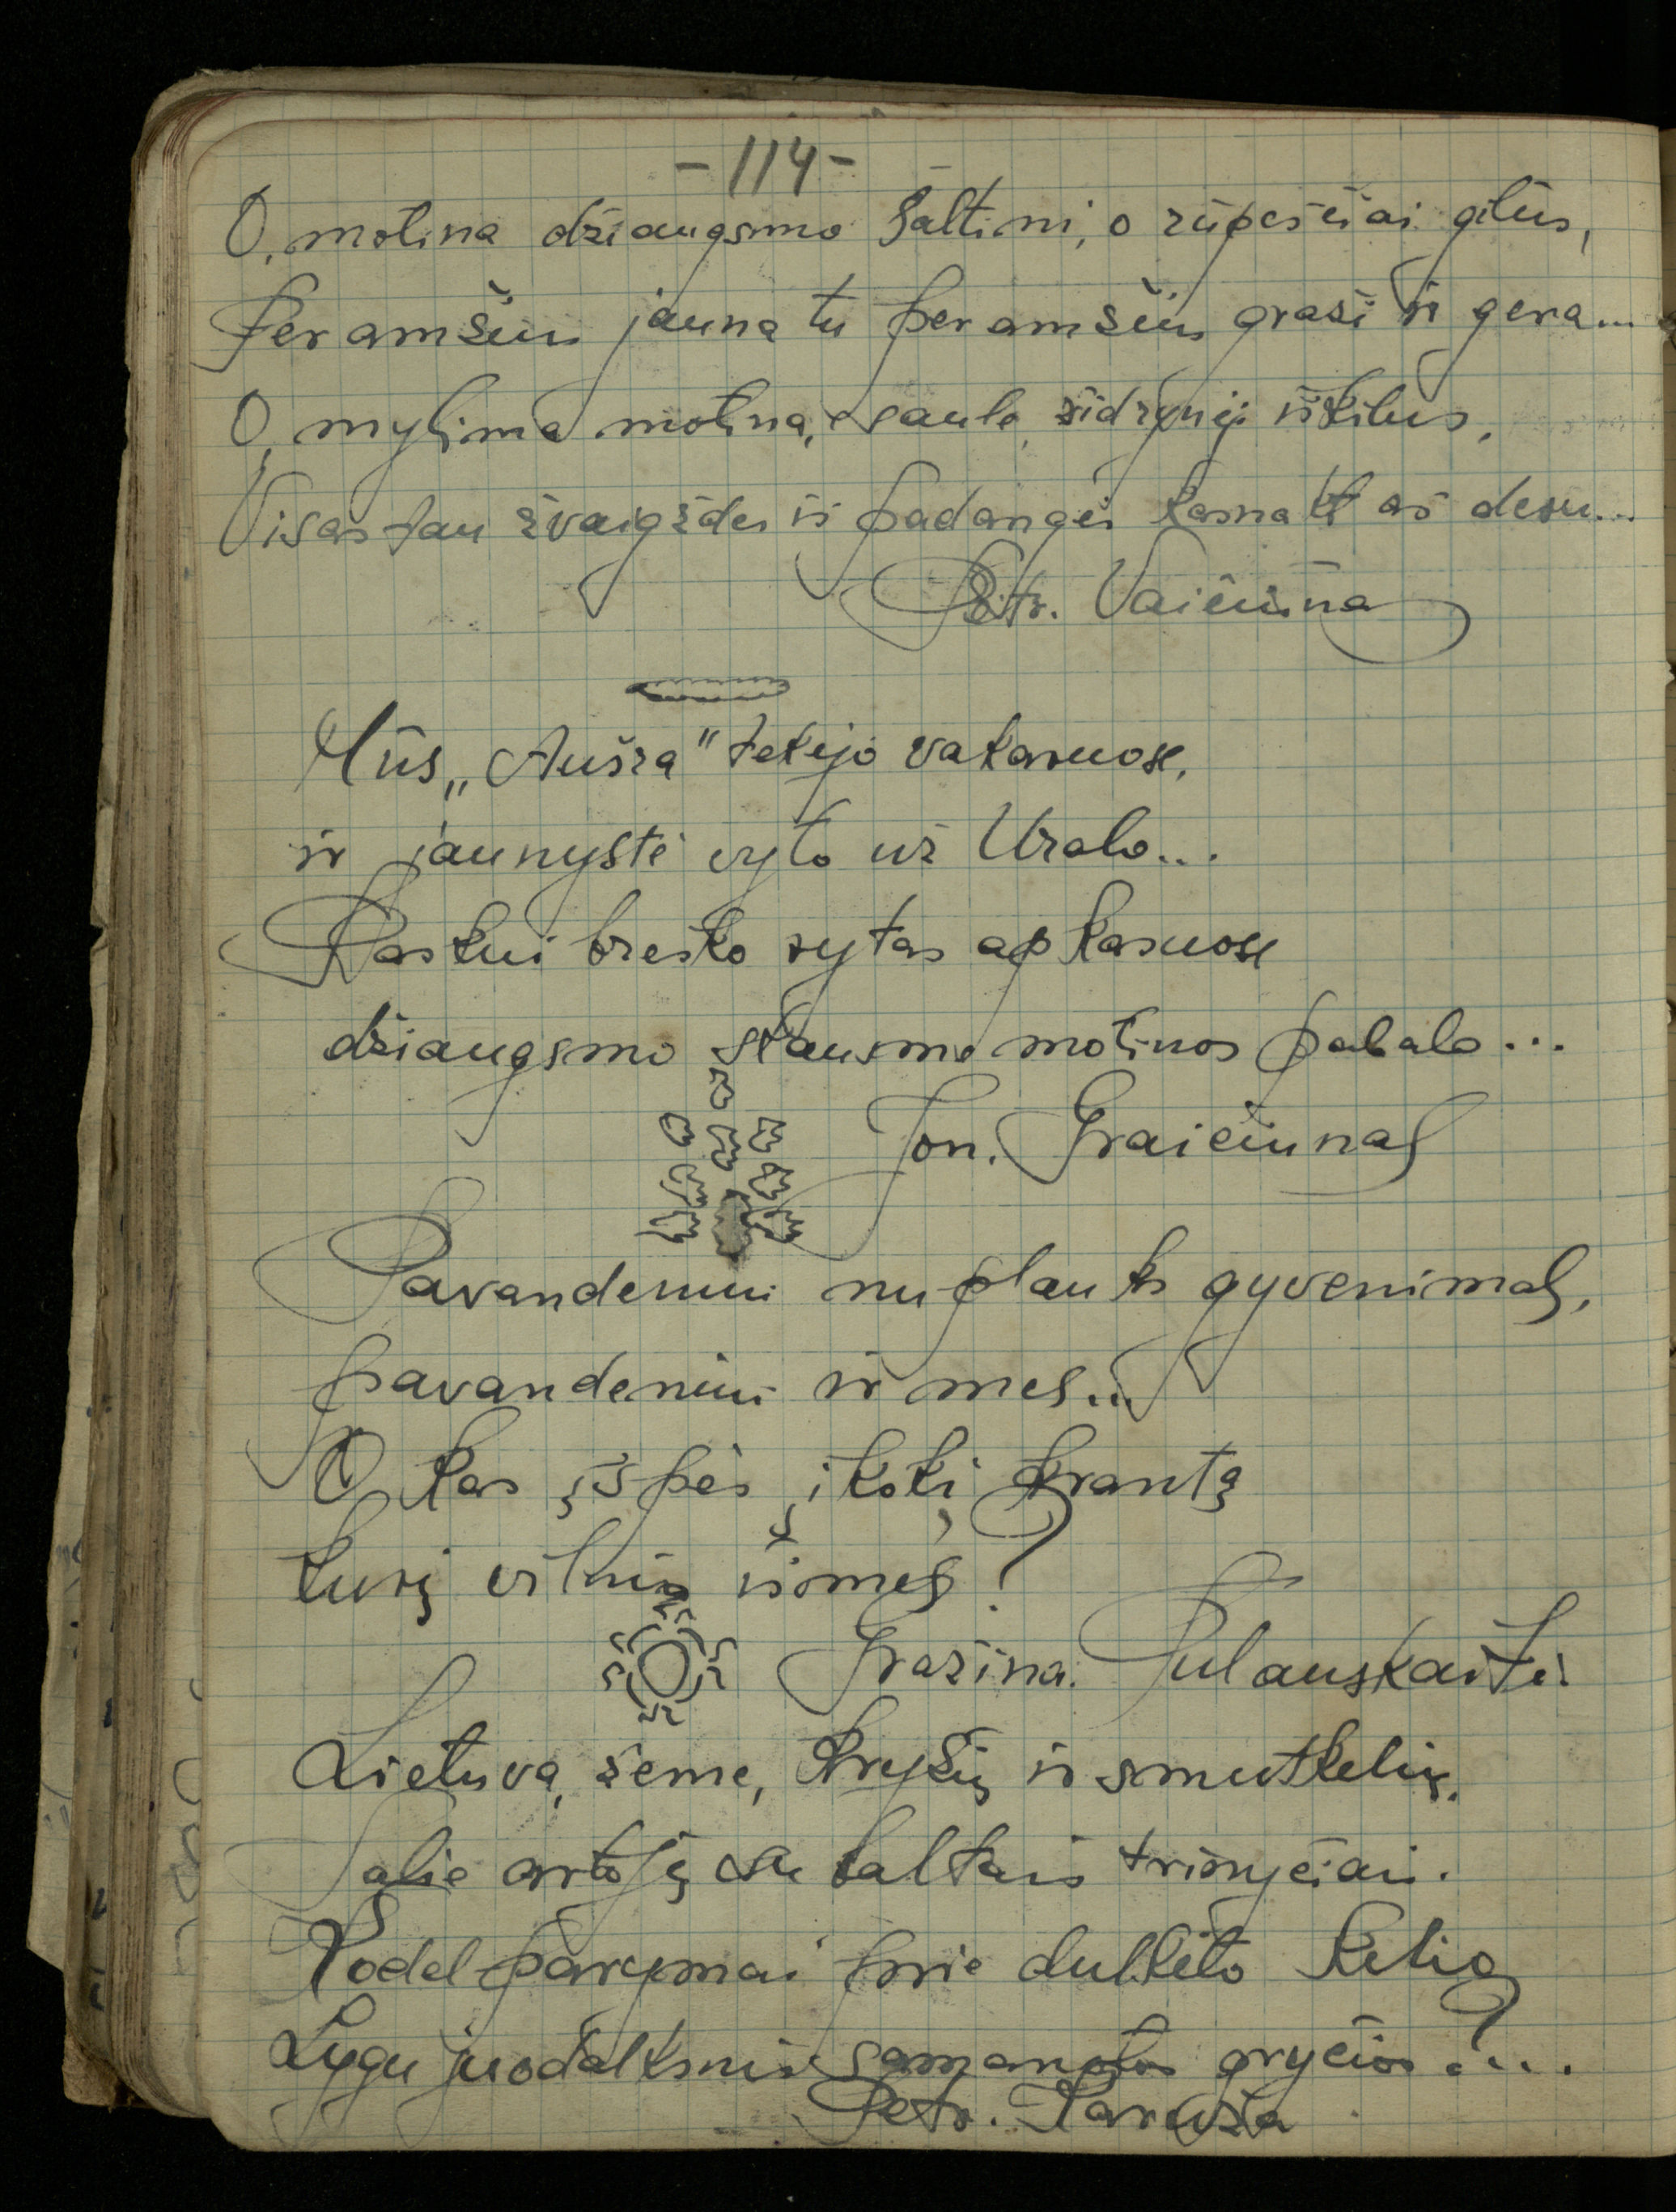 -114-
O, motina džiaugsmo šaltini, o rūpesčiai gilūs,
Per amžius jauna tu per amžius graži ir gera...
O, mylima motina, saule, židinyj iškilus,
Visas tau žvaigždes iš padangės kasnakt aš deru...
Petr. Vaičiūna
Mūs „Aušra" tekėjo vakaruose,
ir jaunystė vyto už Uralo...
Paskui brėško rytas apkasuose
džiaugsmo skausmo motinos pabalo...
Jon. Graičiunas
Pavandeniui nuplauks gyvenimas,
pavandeniui ir mes...
O kas įspės į kokį krantą
kurį vilnis išmes?
Gražina. Tulauskaitė
Lietuva, žeme, kryžių ir smutkelių.
Šalie artojų su baltais trinyčiais.
Kodel parymai prie dulkėto kelio
Lygu juodalksnis samanotos gryčios?...
Petr. Karuža